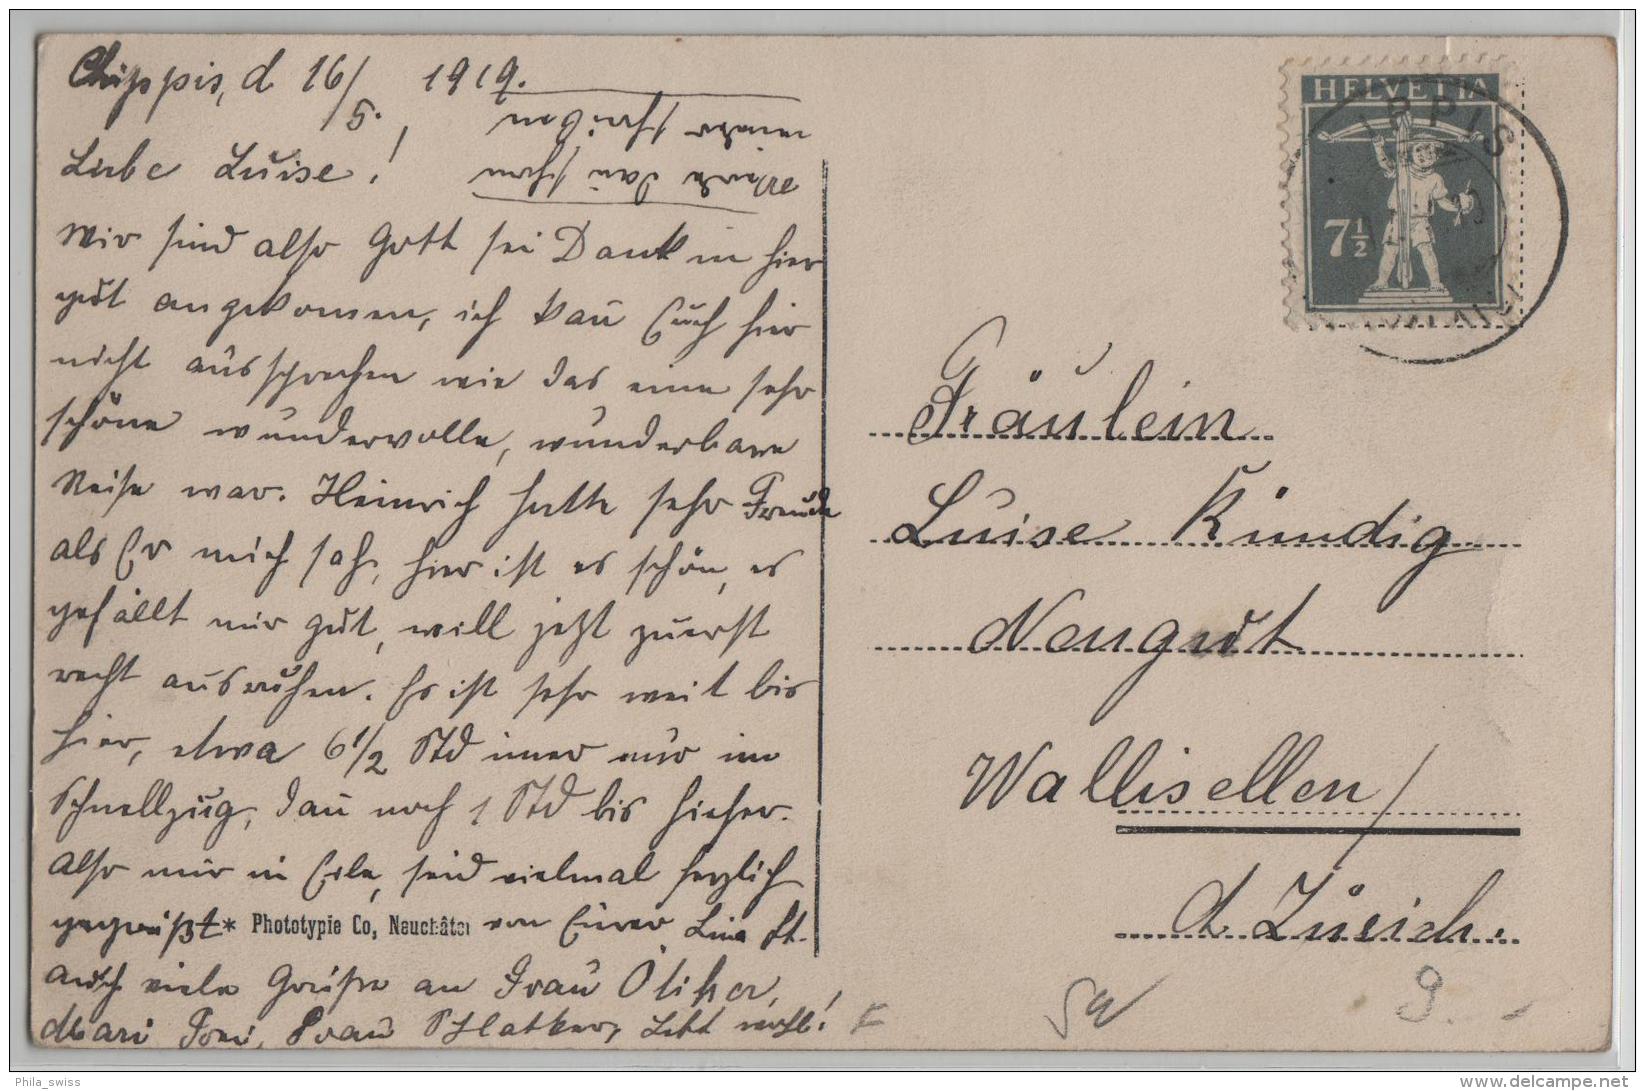 Chippis, d 16/5. 1919.
Liebe Luise!
Wir sind also Gott sei Dank in hier
gut angekommen, ich kan̄ Euch hier
nicht aussprechen wie das eine sehr
schöne wundervolle, wunderbare
Reise war. Heinrich hatte sehr Freude
als Er mich sah, hier ist es schön, es
gefällt mir gut, will jetzt zuerst
recht ausruhen. Es ist sehr weit bis
hier, etwa 6 1/2 Std im̄er nur im
Schnellzug, dan̄ noch 1 Std bis hieher.
Also nur in Eile, seid vielmal herzlich
gegrüßt von Eurer Lina
auch viele Grüße an Frau Ötiker,
Mari Frau Lebt wohl!
Werde dan̄ schon
wieder schreiben
* Phototypie Co, Neuchâtel
HELVETIA
7½
IPPIS
Fräulein
Luise Kündig
Neugut
Wallisellen/
Zürich.
Phila_swiss
www.delcampe.net